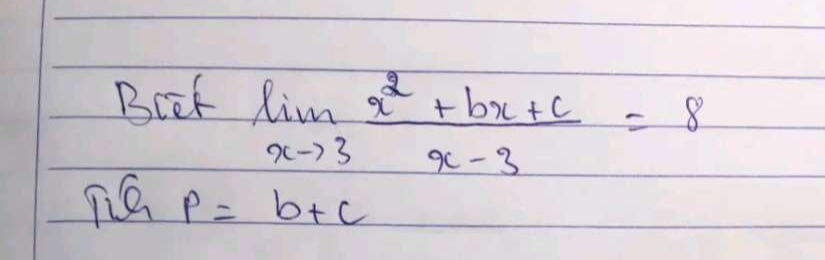 Biết lim x→3 (x² + bx + c)/(x - 3) = 8
Tính P = b+c